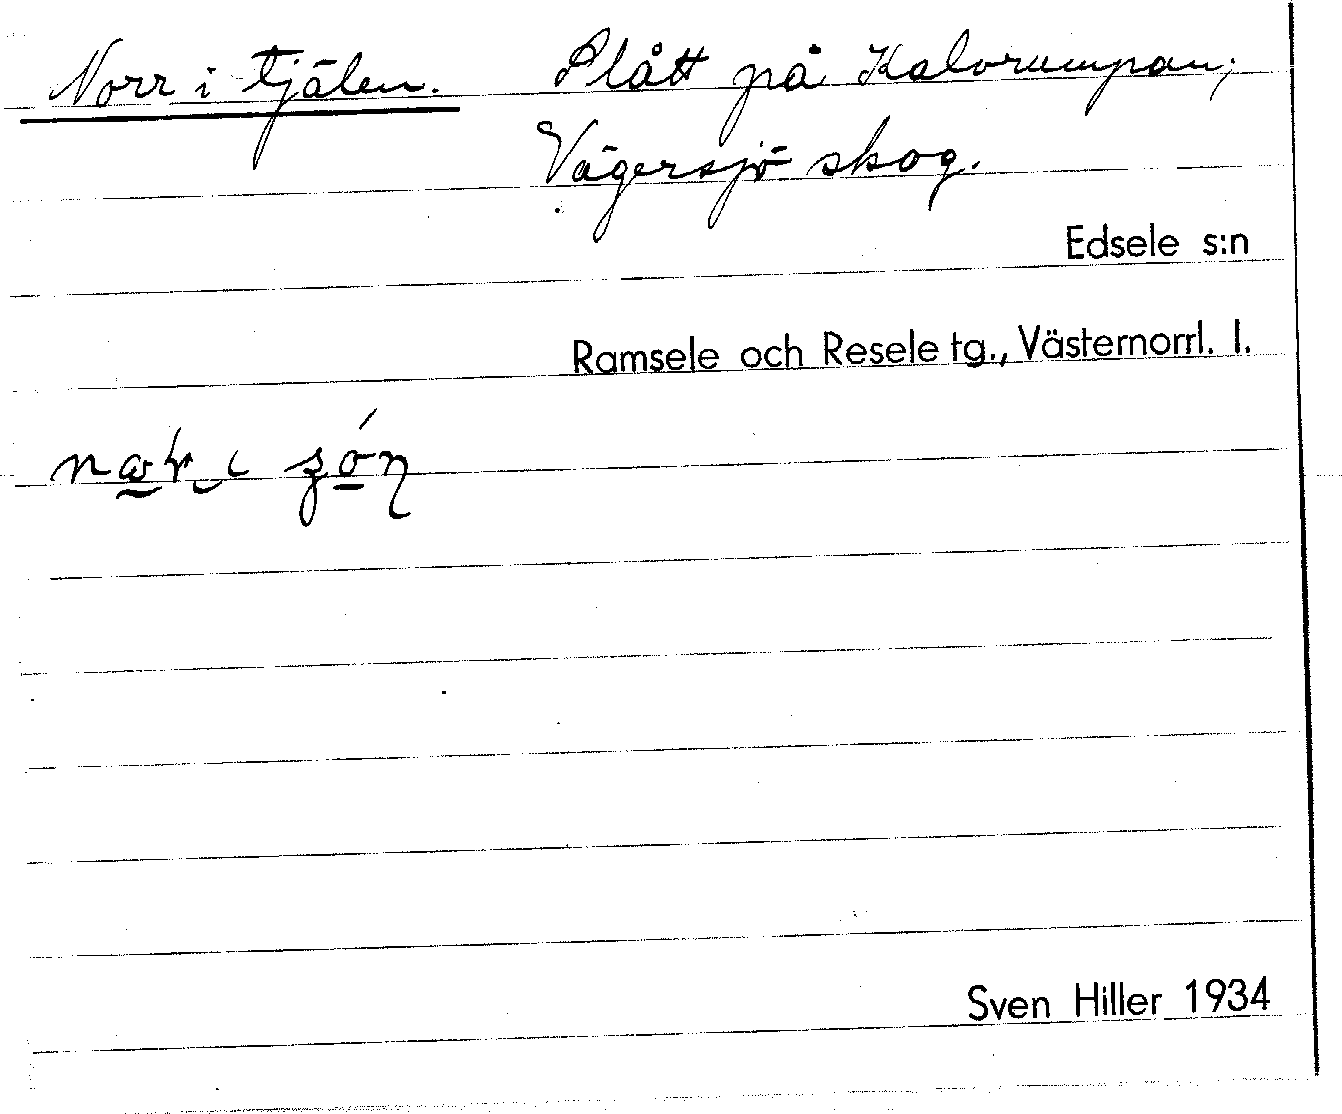 Norr i tjälen. Slått på Kalvrumpan;
Vägersjö skog.
Edsele s:n
Ramsele och Resele tg., Västernorrl. l.
Sven Hiller 1934